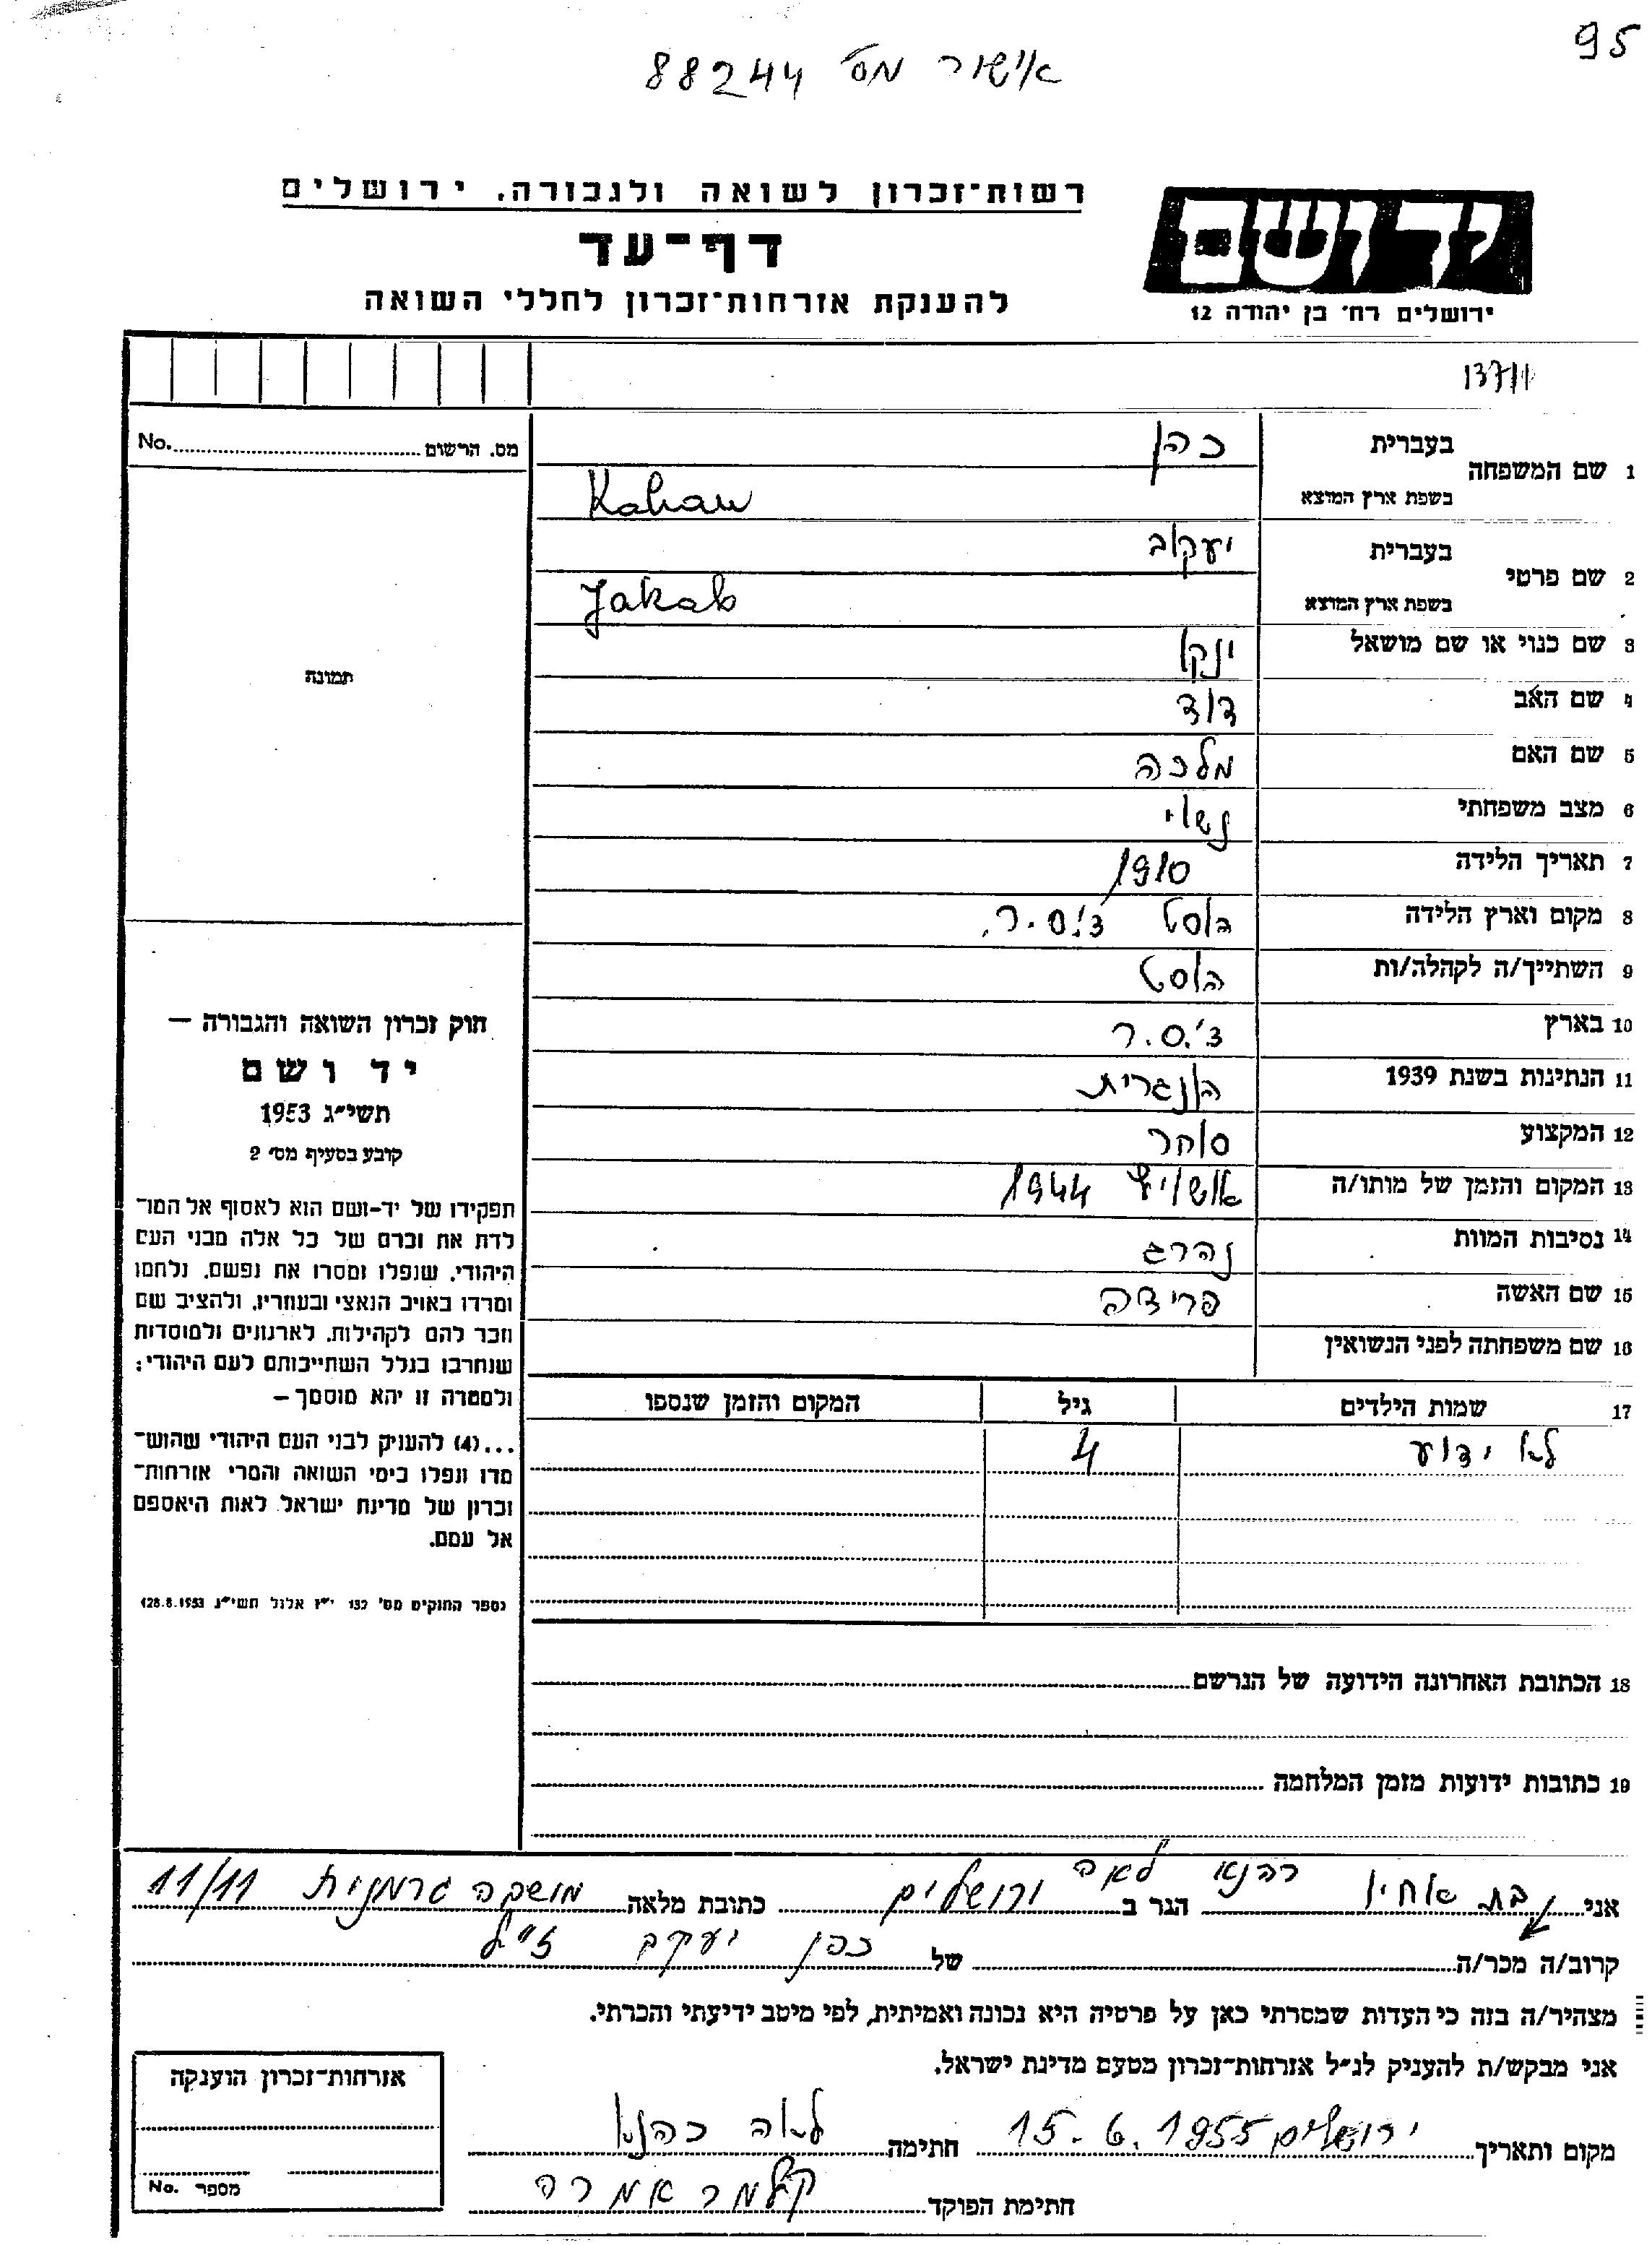 95
אישור מס' 88244
רשות-זכרון לשואה ולגבורה, ירושלים
דף-עד
להענקת אזרחות-זכרון לחללי השואה
יד ושם
ירושלים רח' בן יהודה 12
1371
מס. הרשום No.
1 שם המשפחה
בעברית כהן
בשפת ארץ המוצא Kahan
2 שם פרטי
בעברית יעקוב
בשפת ארץ המוצא Jakab
3 שם כנוי או שם מושאל ינקו
4 שם האב דוד
5 שם האם מלכה
6 מצב משפחתי נשוי
7 תאריך הלידה 1910
8 מקום וארץ הלידה הוסט צ'.ס.ר.
9 השתייך/ה לקהלה/ות הוסט
10 בארץ צ'.ס.ר
11 הנתינות בשנת 1939 הונגרית
12 המקצוע סוחר
13 המקום והזמן של מותו/ה אושויץ 1944
14 נסיבות המוות נהרג
15 שם האשה פרידה
16 שם משפחתה לפני הנשואין
17 שמות הילדים גיל המקום והזמן שנספו
לא ידוע 4
18 הכתובת האחרונה הידועה של הנרשם
19 כתובות ידועות מזמן המלחמה
תמונה
חוק זכרון השואה והגבורה —
יד ושם
תשי"ג 1953
קובע בסעיף מס' 2
תפקידו של יד-ושם הוא לאסוף אל המו-
לדת את זכרם של כל אלה מבני העם
היהודי, שנפלו ומסרו את נפשם, נלחמו
ומרדו באויב הנאצי ובעוזריו, ולהציב שם
וזכר להם לקהילות, לארגונים ולמוסדות
שנחרבו בגלל השתייכותם לעם היהודי;
ולמטרה זו יהא מוסמך —
...(4) להעניק לבני העם היהודי שהוש-
מדו ונפלו בימי השואה והמרי אזרחות-
זכרון של מדינת ישראל לאות היאספם
אל עמם.
(ספר החוקים מס' 132 י"ז אלול תשי"ג 28.8.1953)
אני בת אחיו כהנא לאה הגר ב ירושלים כתובת מלאה מושבה גרמנית 11/11
קרוב/ה מכר/ה של כהן יעקב ז"ל
מצהיר/ה בזה כי העדות שמסרתי כאן על פרטיה היא נכונה ואמיתית, לפי מיטב ידיעתי והכרתי.
אני מבקש/ת להעניק לנ"ל אזרחות-זכרון מטעם מדינת ישראל.
מקום ותאריך ירושלים 15.6.1955 חתימה לאה כהנא
חתימת הפוקד
אזרחות-זכרון הוענקה
מספר No.